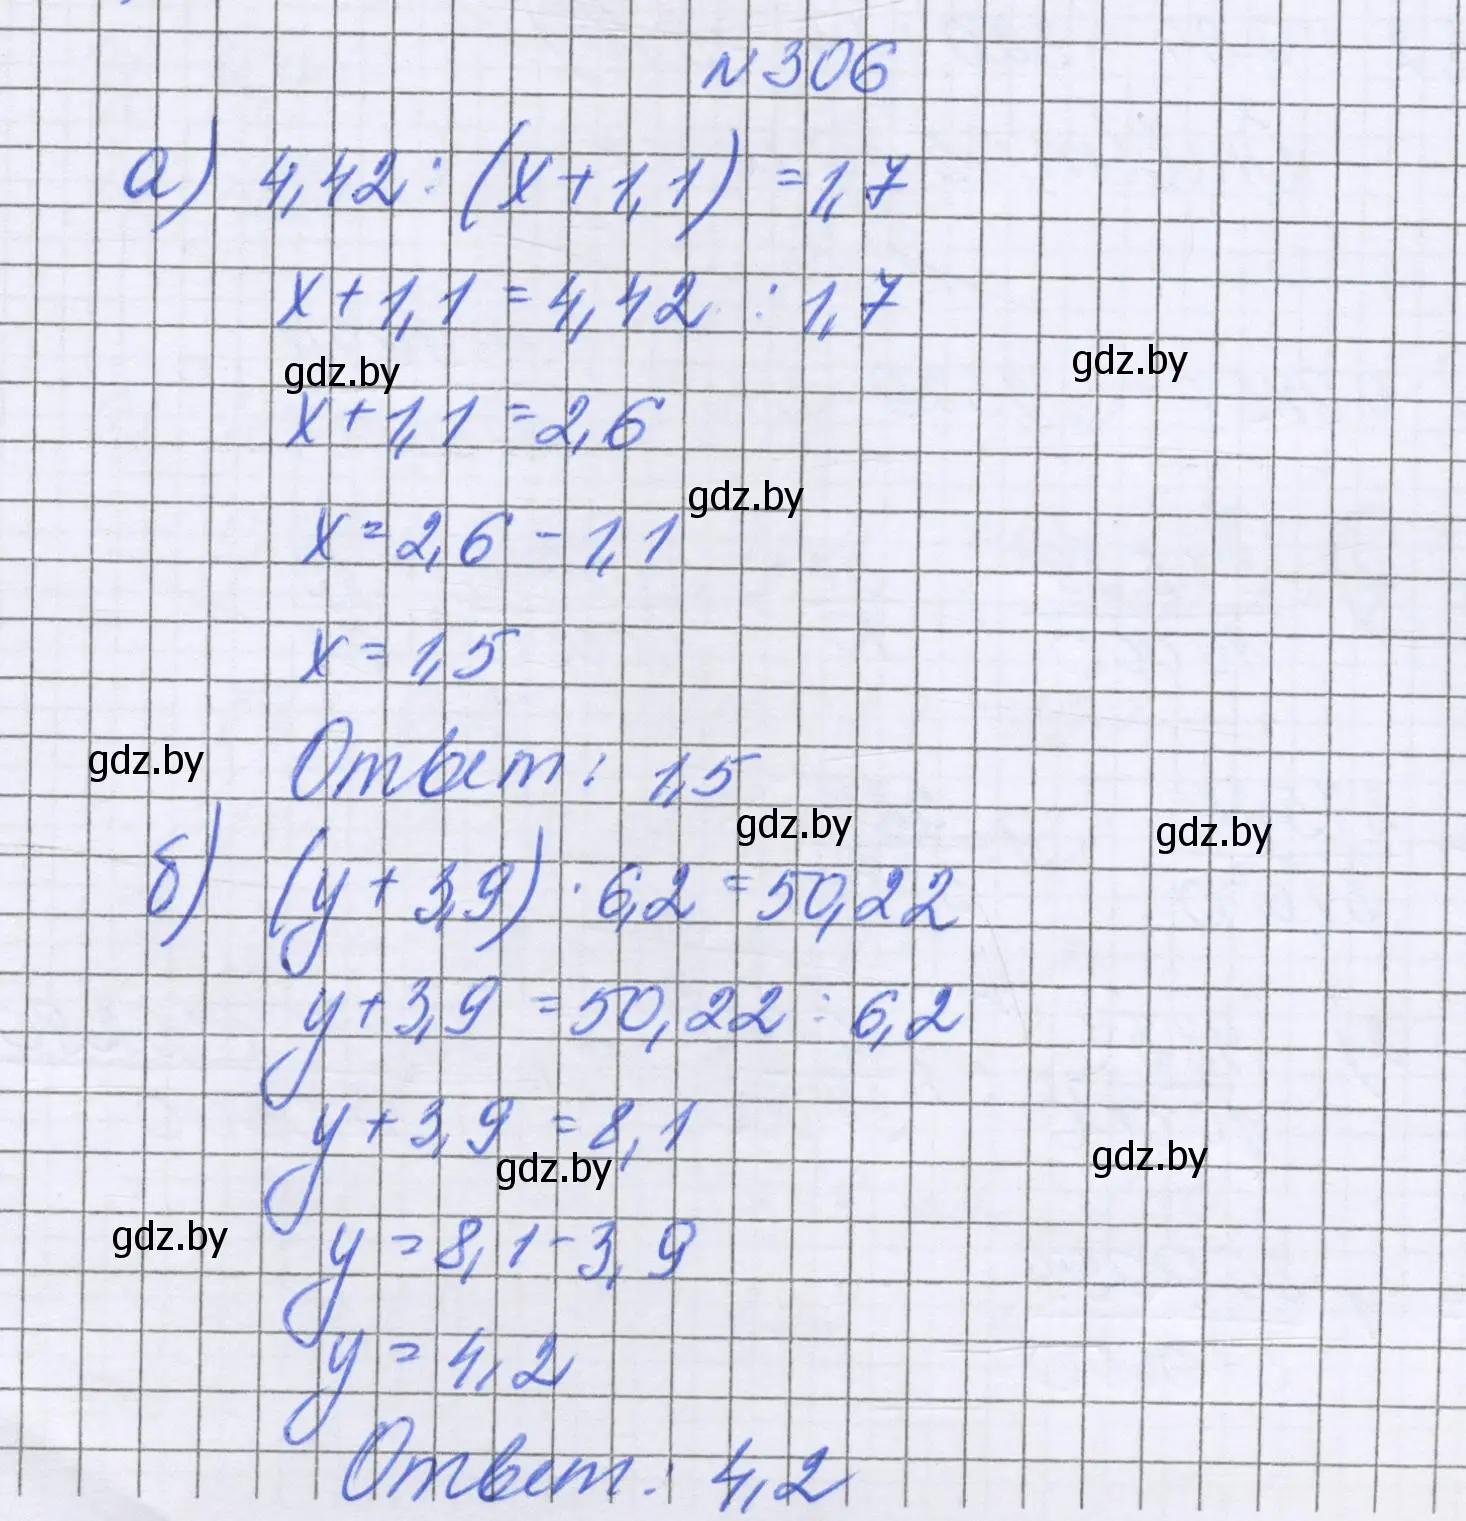 N 306
а) 4,42 : (x + 1,1) = 1,7
x + 1,1 = 4,42 : 1,7
gdz.by
gdz.by
x + 1,1 = 2,6
gdz.by
x = 2,6 - 1,1
x = 1,5
gdz.by
Ответ: 1,5
gdz.by
gdz.by
б) (y + 3,9) · 6,2 = 50,22
y + 3,9 = 50,22 : 6,2
y + 3,9 = 8,1
gdz.by
gdz.by
gdz.by
y = 8,1 - 3,9
y = 4,2
Ответ: 4,2